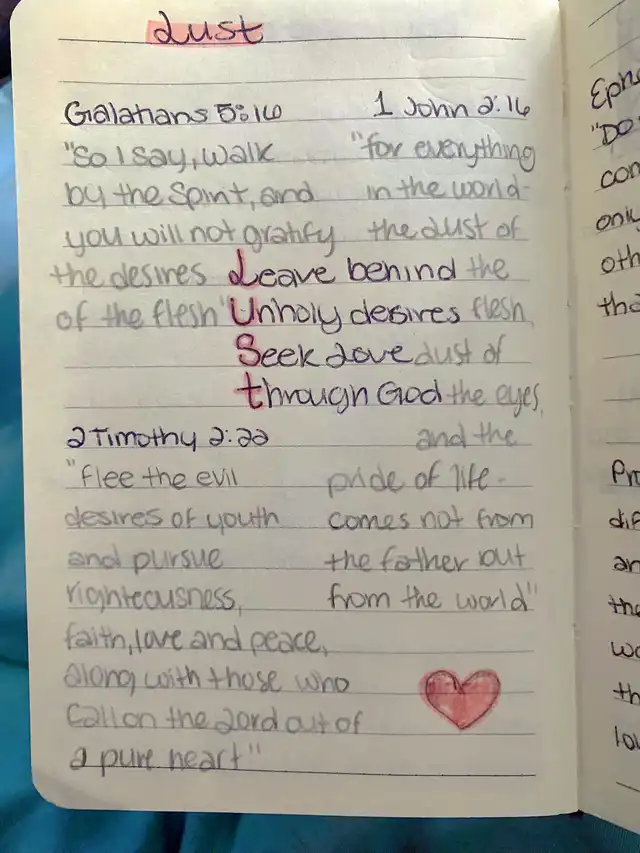 Lust
Galatians 5:16
"So I say, walk
by the Spirit, and
you will not gratify
the desires
of the flesh"
1 John 2:16
"for everything
in the world-
the Lust of
the
flesh,
Lust of
the eyes,
and the
pride of life-
comes not from
the father but
from the world"
Leave behind
Unholy desires
Seek Love
through God
2 Timothy 2:22
"Flee the evil
desires of youth
and pursue
righteousness,
faith, love and peace,
along with those who
call on the Lord out of
a pure heart"
Eph
"Do
con
only
oth
tha
Pr
dif
an
the
wo
th
lo